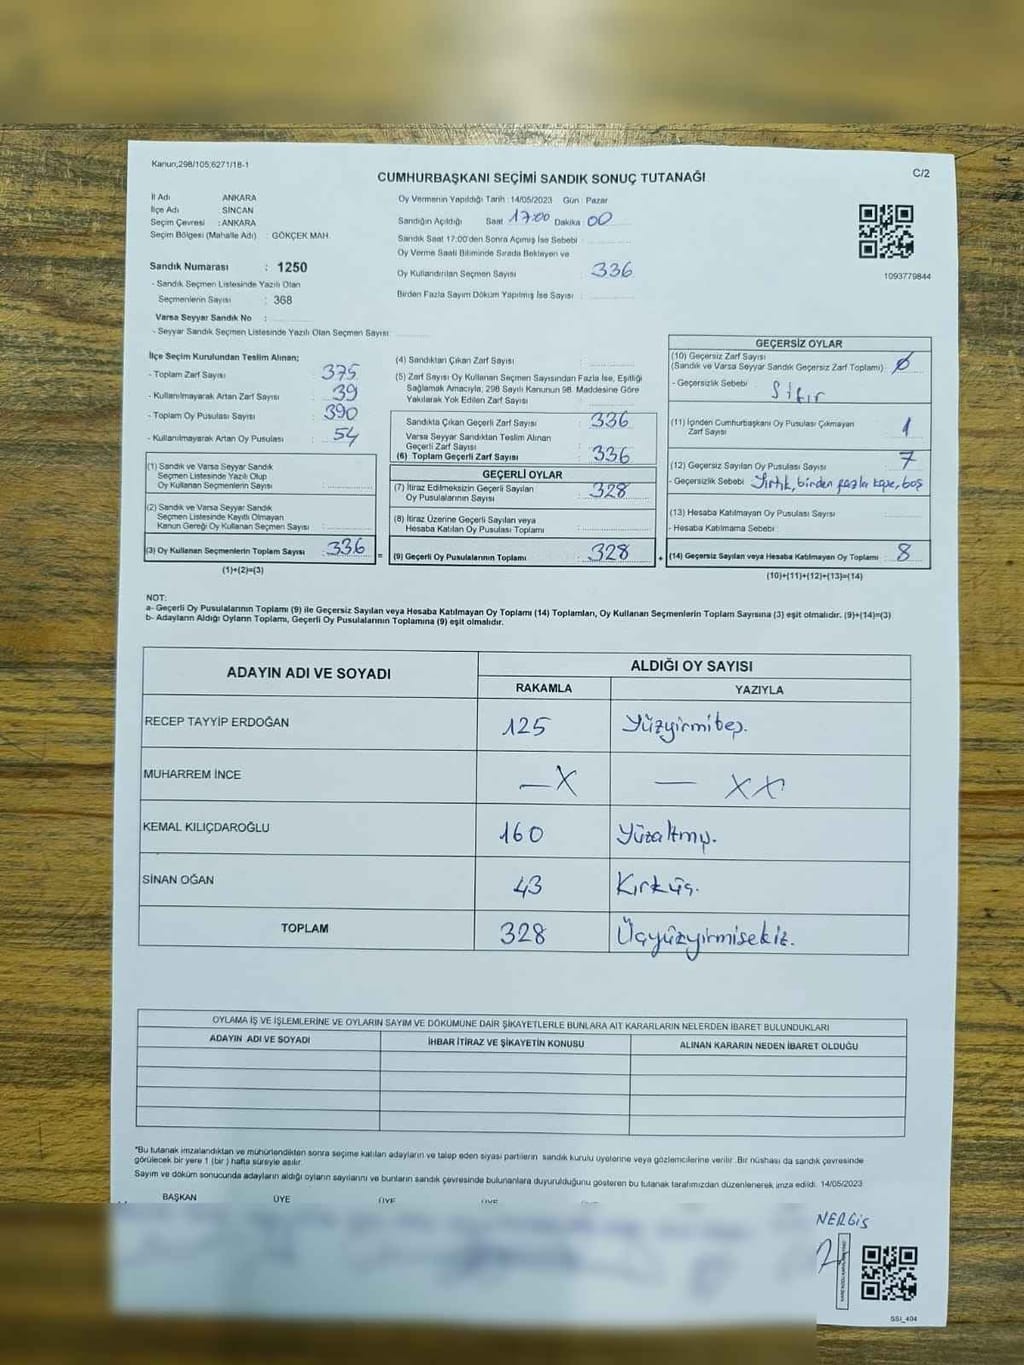 Kanun,298/105,6271/18-1
CUMHURBAŞKANI SEÇİMİ SANDIK SONUÇ TUTANAĞI
C/2
İl Adı ANKARA
İlçe Adı : SİNCAN
Seçim Çevresi : ANKARA
Seçim Bölgesi (Mahalle Adı) : GÖKÇEK MAH.
Oy Vermenin Yapıldığı Tarih : 14/05/2023 Gün : Pazar
Sandığın Açıldığı Saat 17:00 Dakika : 00
Sandık Saat 17:00'den Sonra Açmış İse Sebebi :
Oy Verme Saati Bitiminde Sırada Bekleyen ve
Oy Kullandırılan Seçmen Sayısı : 336
Birden Fazla Sayım Döküm Yapılmış İse Sayısı :
1093779844
Sandık Numarası : 1250
- Sandık Seçmen Listesinde Yazılı Olan
Seçmenlerin Sayısı : 368
Varsa Seyyar Sandık No :
- Seyyar Sandık Seçmen Listesinde Yazılı Olan Seçmen Sayısı:
İlçe Seçim Kurulundan Teslim Alınan;
- Toplam Zarf Sayısı : 375
- Kullanılmayarak Artan Zarf Sayısı : 39
- Toplam Oy Pusulası Sayısı : 390
- Kullanılmayarak Artan Oy Pusulası : 54
(1) Sandık ve Varsa Seyyar Sandık
Seçmen Listesinde Yazılı Olup
Oy Kullanan Seçmenlerin Sayısı :
(2) Sandık ve Varsa Seyyar Sandık
Seçmen Listesinde Kayıtlı Olmayan
Kanun Gereği Oy Kullanan Seçmen Sayısı :
(3) Oy Kullanan Seçmenlerin Toplam Sayısı : 336
(1)+(2)=(3)
(4) Sandıktan Çıkan Zarf Sayısı :
(5) Zarf Sayısı Oy Kullanan Seçmen Sayısından Fazla İse, Eşitliği
Sağlamak Amacıyla, 298 Sayılı Kanunun 98. Maddesine Göre
Yakılarak Yok Edilen Zarf Sayısı :
Sandıkta Çıkan Geçerli Zarf Sayısı : 336
Varsa Seyyar Sandıktan Teslim Alınan
Geçerli Zarf Sayısı :
(6) Toplam Geçerli Zarf Sayısı : 336
GEÇERLİ OYLAR
(7) İtiraz Edilmeksizin Geçerli Sayılan
Oy Pusulalarının Sayısı : 328
(8) İtiraz Üzerine Geçerli Sayılan veya
Hesaba Katılan Oy Pusulası Toplamı :
= (9) Geçerli Oy Pusulalarının Toplamı : 328
GEÇERSİZ OYLAR
(10) Geçersiz Zarf Sayısı
(Sandık ve Varsa Seyyar Sandık Geçersiz Zarf Toplamı) : 0
- Geçersizlik Sebebi : Sıfır
(11) İçinden Cumhurbaşkanı Oy Pusulası Çıkmayan
Zarf Sayısı : 1
(12) Geçersiz Sayılan Oy Pusulası Sayısı : 7
- Geçersizlik Sebebi : Yırtık, birden fazla kaşe, boş
(13) Hesaba Katılmayan Oy Pusulası Sayısı :
- Hesaba Katılmama Sebebi :
+ (14) Geçersiz Sayılan veya Hesaba Katılmayan Oy Toplamı : 8
(10)+(11)+(12)+(13)=(14)
NOT:
a- Geçerli Oy Pusulalarının Toplamı (9) ile Geçersiz Sayılan veya Hesaba Katılmayan Oy Toplamı (14) Toplamları, Oy Kullanan Seçmenlerin Toplam Sayısına (3) eşit olmalıdır. (9)+(14)=(3)
b- Adayların Aldığı Oyların Toplamı, Geçerli Oy Pusulalarının Toplamına (9) eşit olmalıdır.
ADAYIN ADI VE SOYADI
ALDIĞI OY SAYISI
RAKAMLA YAZIYLA
RECEP TAYYİP ERDOĞAN 125 Yüzyirmibeş.
MUHARREM İNCE —X — XX
KEMAL KILIÇDAROĞLU 160 Yüzaltmış.
SİNAN OĞAN 43 Kırküç.
TOPLAM 328 Üçyüzyirmisekiz.
OYLAMA İŞ VE İŞLEMLERİNE VE OYLARIN SAYIM VE DÖKÜMÜNE DAİR ŞİKAYETLERLE BUNLARA AİT KARARLARIN NELERDEN İBARET BULUNDUKLARI
ADAYIN ADI VE SOYADI İHBAR İTİRAZ VE ŞİKAYETİN KONUSU ALINAN KARARIN NEDEN İBARET OLDUĞU
*Bu tutanak imzalandıktan ve mühürlendikten sonra seçime katılan adayların ve talep eden siyasi partilerin sandık kurulu üyelerine veya gözlemcilerine verilir. Bir nüshası da sandık çevresinde
görülecek bir yere 1 (bir) hafta süreyle asılır.
Sayım ve döküm sonucunda adayların aldığı oyların sayılarını ve bunların sandık çevresinde bulunanlara duyurulduğunu gösteren bu tutanak tarafımızdan düzenlenerek imza edildi. 14/05/2023
BAŞKAN ÜYE ÜYE ÜYE
NERGİS
SSİ_404